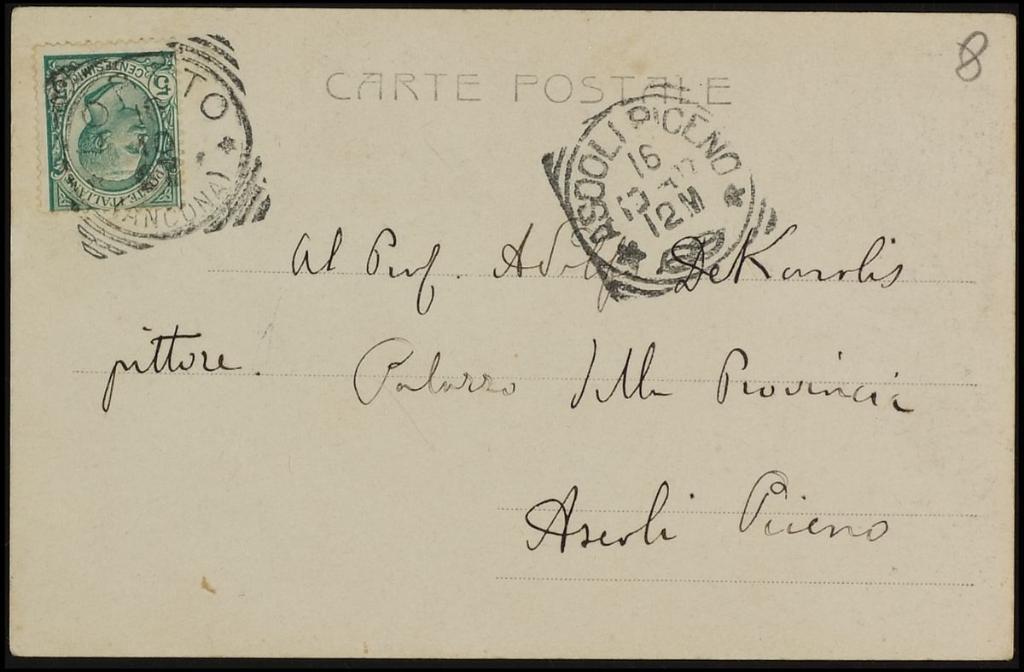 8
CARTE POSTALE
5 CENTESIMI 5
POSTE ITALIANE
TO
(ANCONA)
ASCOLI PICENO
16
12 M
Al Prof. Adolfo De Karolis
pittore. Palazzo della Provincia
Ascoli Piceno